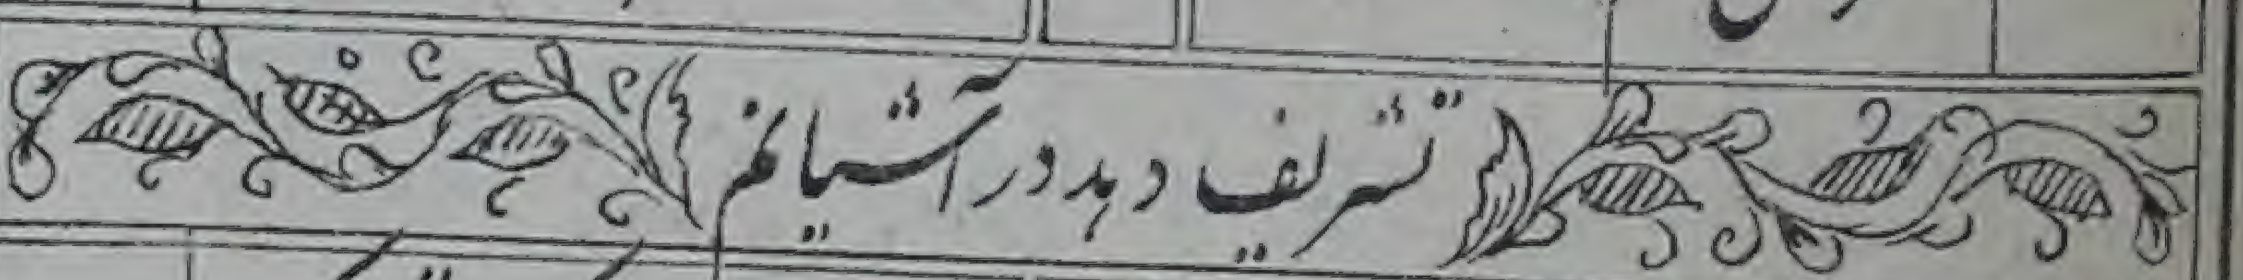 تشریف دہد در آشیانم